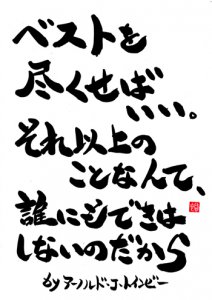 ベストを
尽くせば
いい。
それ以上の
ことなんて、
誰にもできは
しないのだから
by アーノルド・J・トインビー